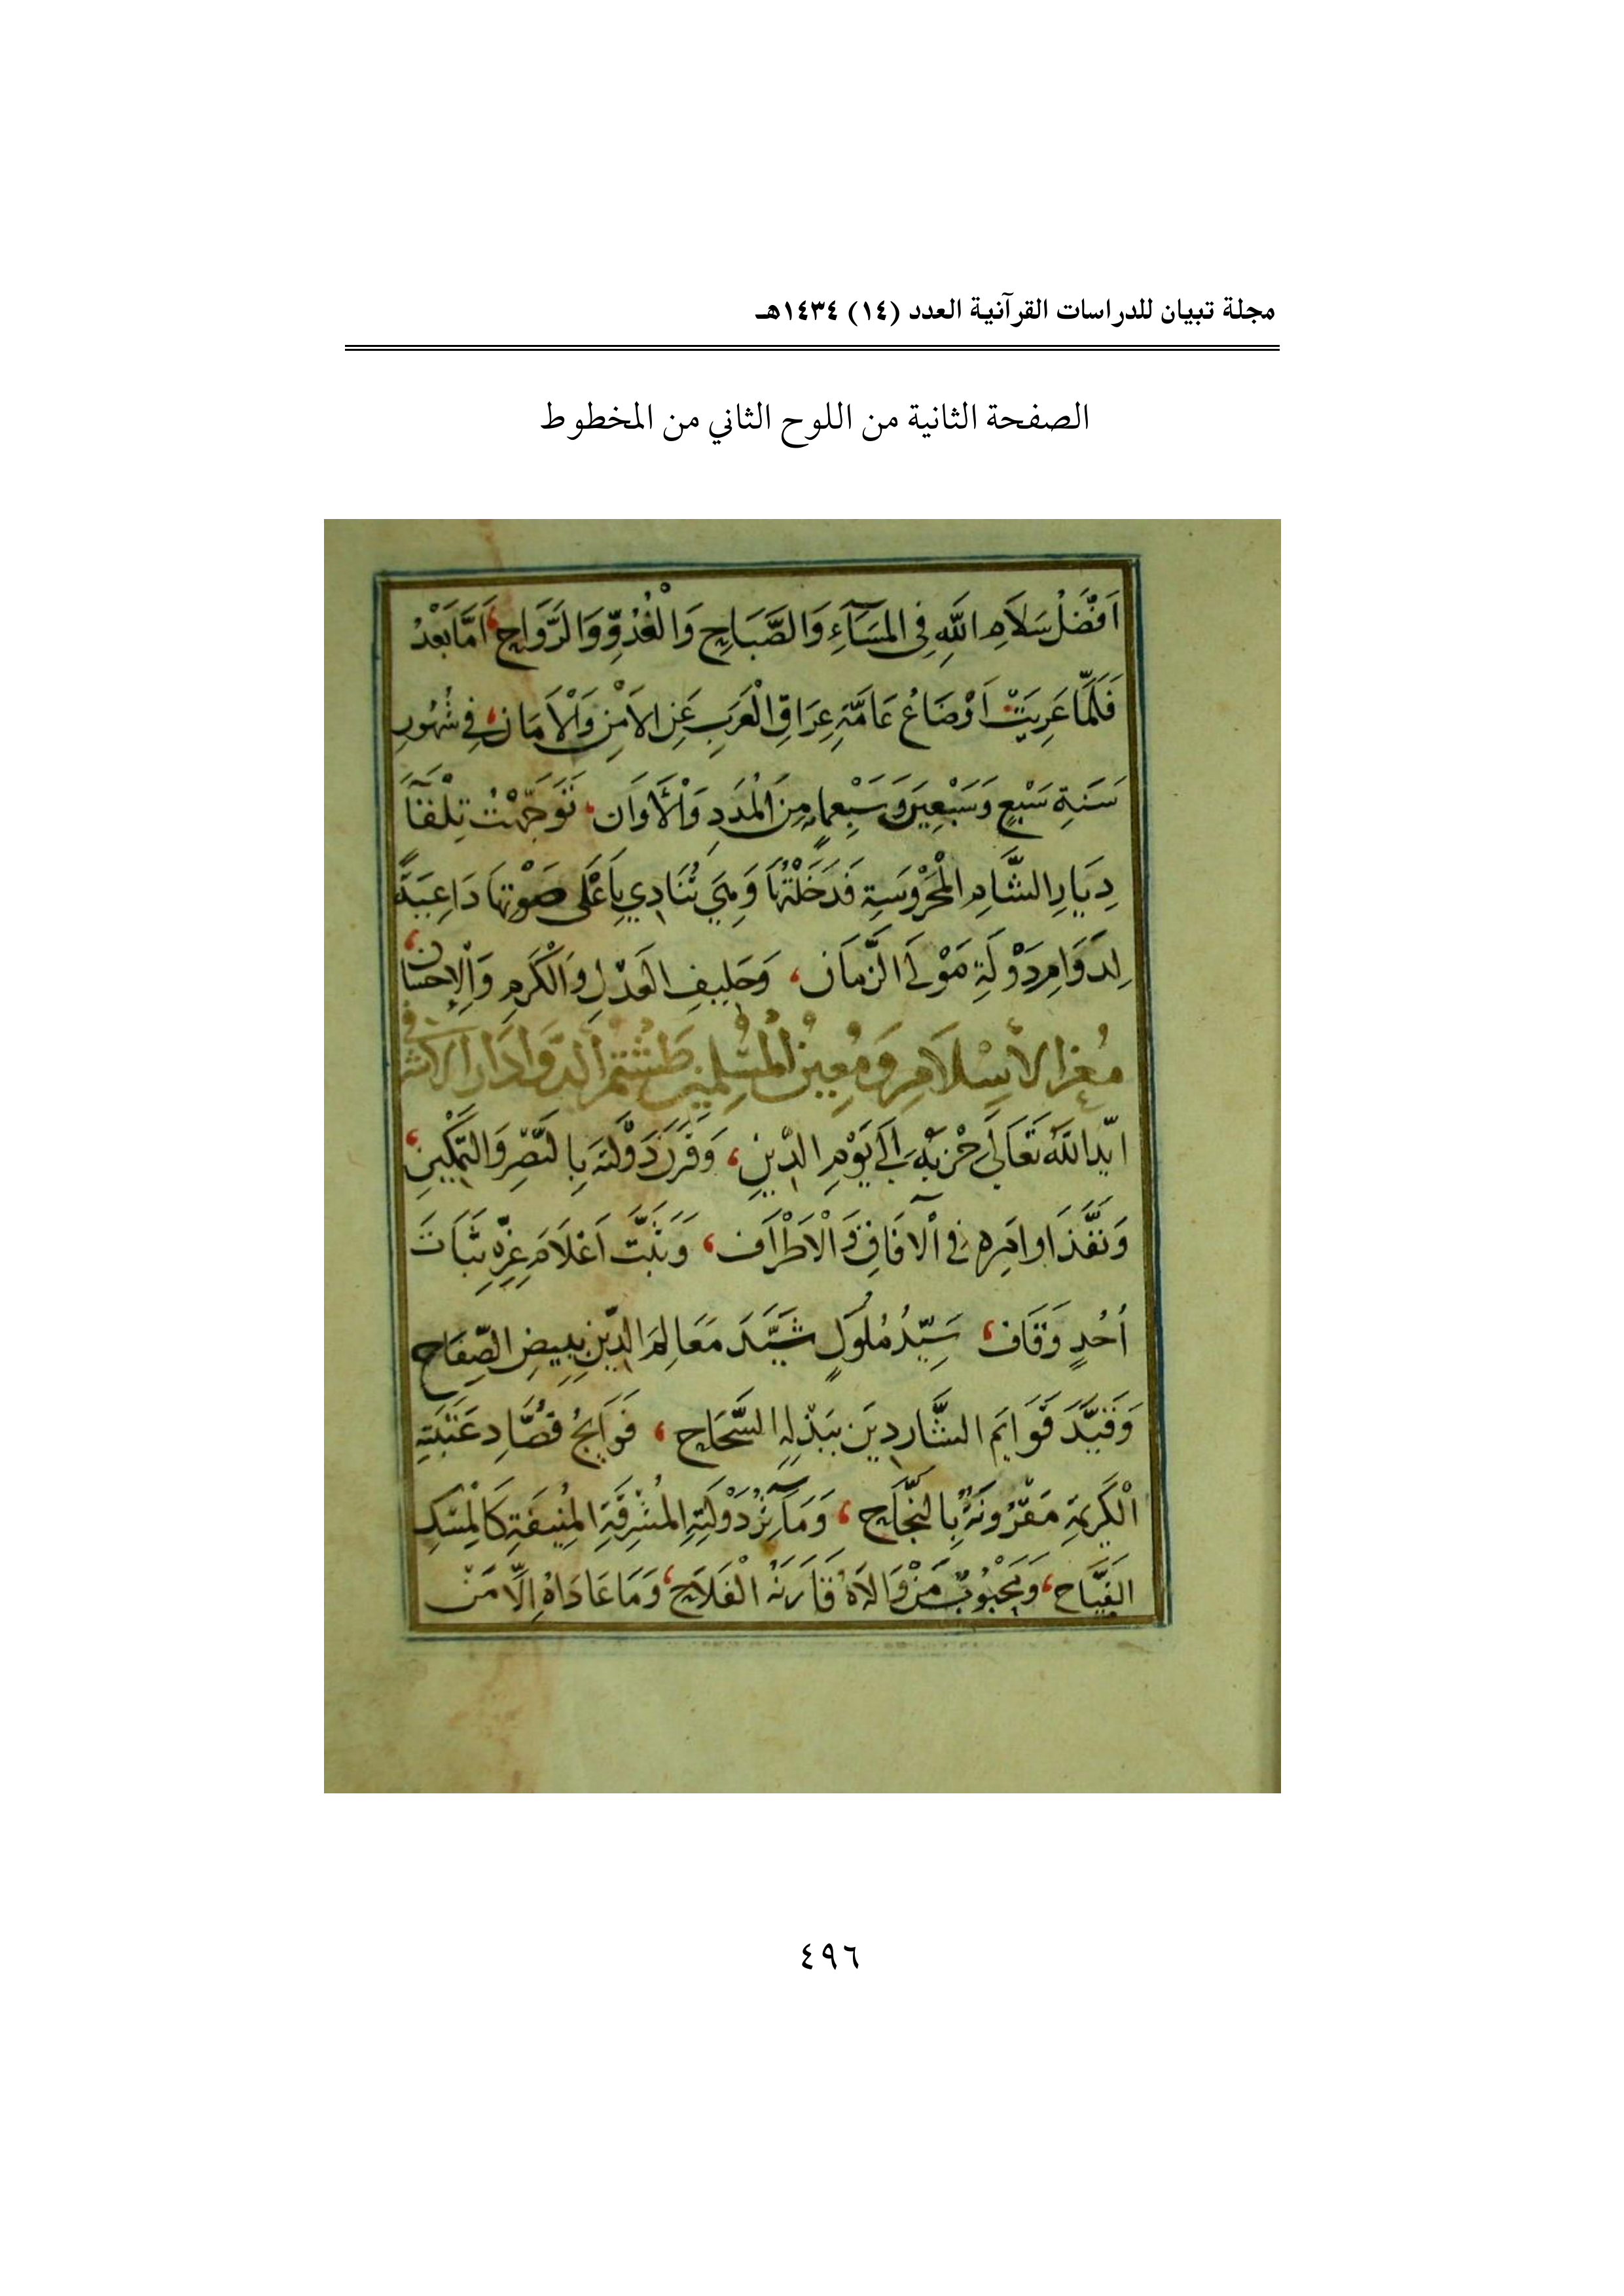 مجلة تبيان للدراسات القرآنية العدد (١٤) ١٤٣٤هـ
الصفحة الثانية من اللوح الثاني من المخطوط
اَفْضَلُ سَلاَمِ اللّٰهِ فِى المَسَآءِ وَالصَّبَاحِ وَالْغُدُوِّ وَالرَّوَاحِ، اَمَّا بَعْدُ
فَلَمَّا عَرِيَتْ اَوْضَاعُ عَامَّةِ عِرَاقِ الْعَرَبِ عَنِ الاَمْنِ وَالْاَمَانِ، فِي شُهُورِ
سَنَةِ سَبْعٍ وَسَبْعِينَ وَسَبْعِمايةٍ مِنَ الْمُدَدِ وَالْأَوَان، تَوَجَّهْتُ تِلْقَآءَ
دِيَارِ الشَّامِ الْمَحْرُوسَةِ فَدَخَلْتُهَا وَهِيَ تُنَادِي بِاَعْلَى صَوْتِهَا دَاعِيَةً
لِدَوَامِ دَوْلَةِ مَوْلَى الزَّمَان، وَحَلِيفِ العَدْلِ وَالْكَرَمِ وَالْإِحْسَان،
مُعِزِّ الْاِسْلَامِ وَمُعِينِ الْمُسْلِمِينَ طَشْتَمُر الدَّوَادَار الاَشْرَفِي
ايَّدَ اللّٰهُ تَعَالَى حِزْبَهُ اِلَى يَوْمِ الدِّينِ، وَقَرَنَ دَوْلَتَهُ بِالنَّصْرِ وَالتَّمْكِينِ،
وَنَفَّذَ اوَامِرَه فِي الْآفَاقِ وَالْاَطْرَاف، وَثَبَّتَ اَعْلَامَ عِزِّهِ ثَبَاتَ
اُحُدٍ وَقَاف، سَيِّدُ مُلُوكٍ شَيَّدَ مَعَالِمَ الدِّينِ بِبِيضِ الصِّفَاحِ
وَقَيَّدَ قَوَايمَ الشَّارِدِينَ بِبَذْلِهِ السَّحَّاحِ، فَوَايحُ قُصَّادِ عَتَبَتِهِ
الْكَرِيمَةِ مَقْرُونَةٌ بِالنَّجَاحِ، وَمَآثِرُ دَوْلَتِهِ المُشْرِقَةِ المُنِيفَةِ كَالمِسْكِ
الفَيَّاحِ، وَمَحْبُوبُ مَنْ وَالَاهُ قَارَنَهُ الْفَلَاحُ، وَمَا عَادَاهُ اِلَّا مَنْ
٤٩٦